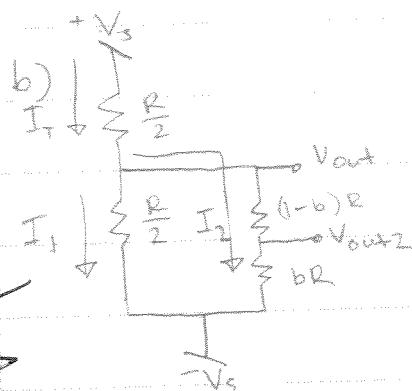 + Vs
b)
I_T
R/2
Vout
I_1
R/2
I_2
(1-b)R
Vout2
bR
-Vs